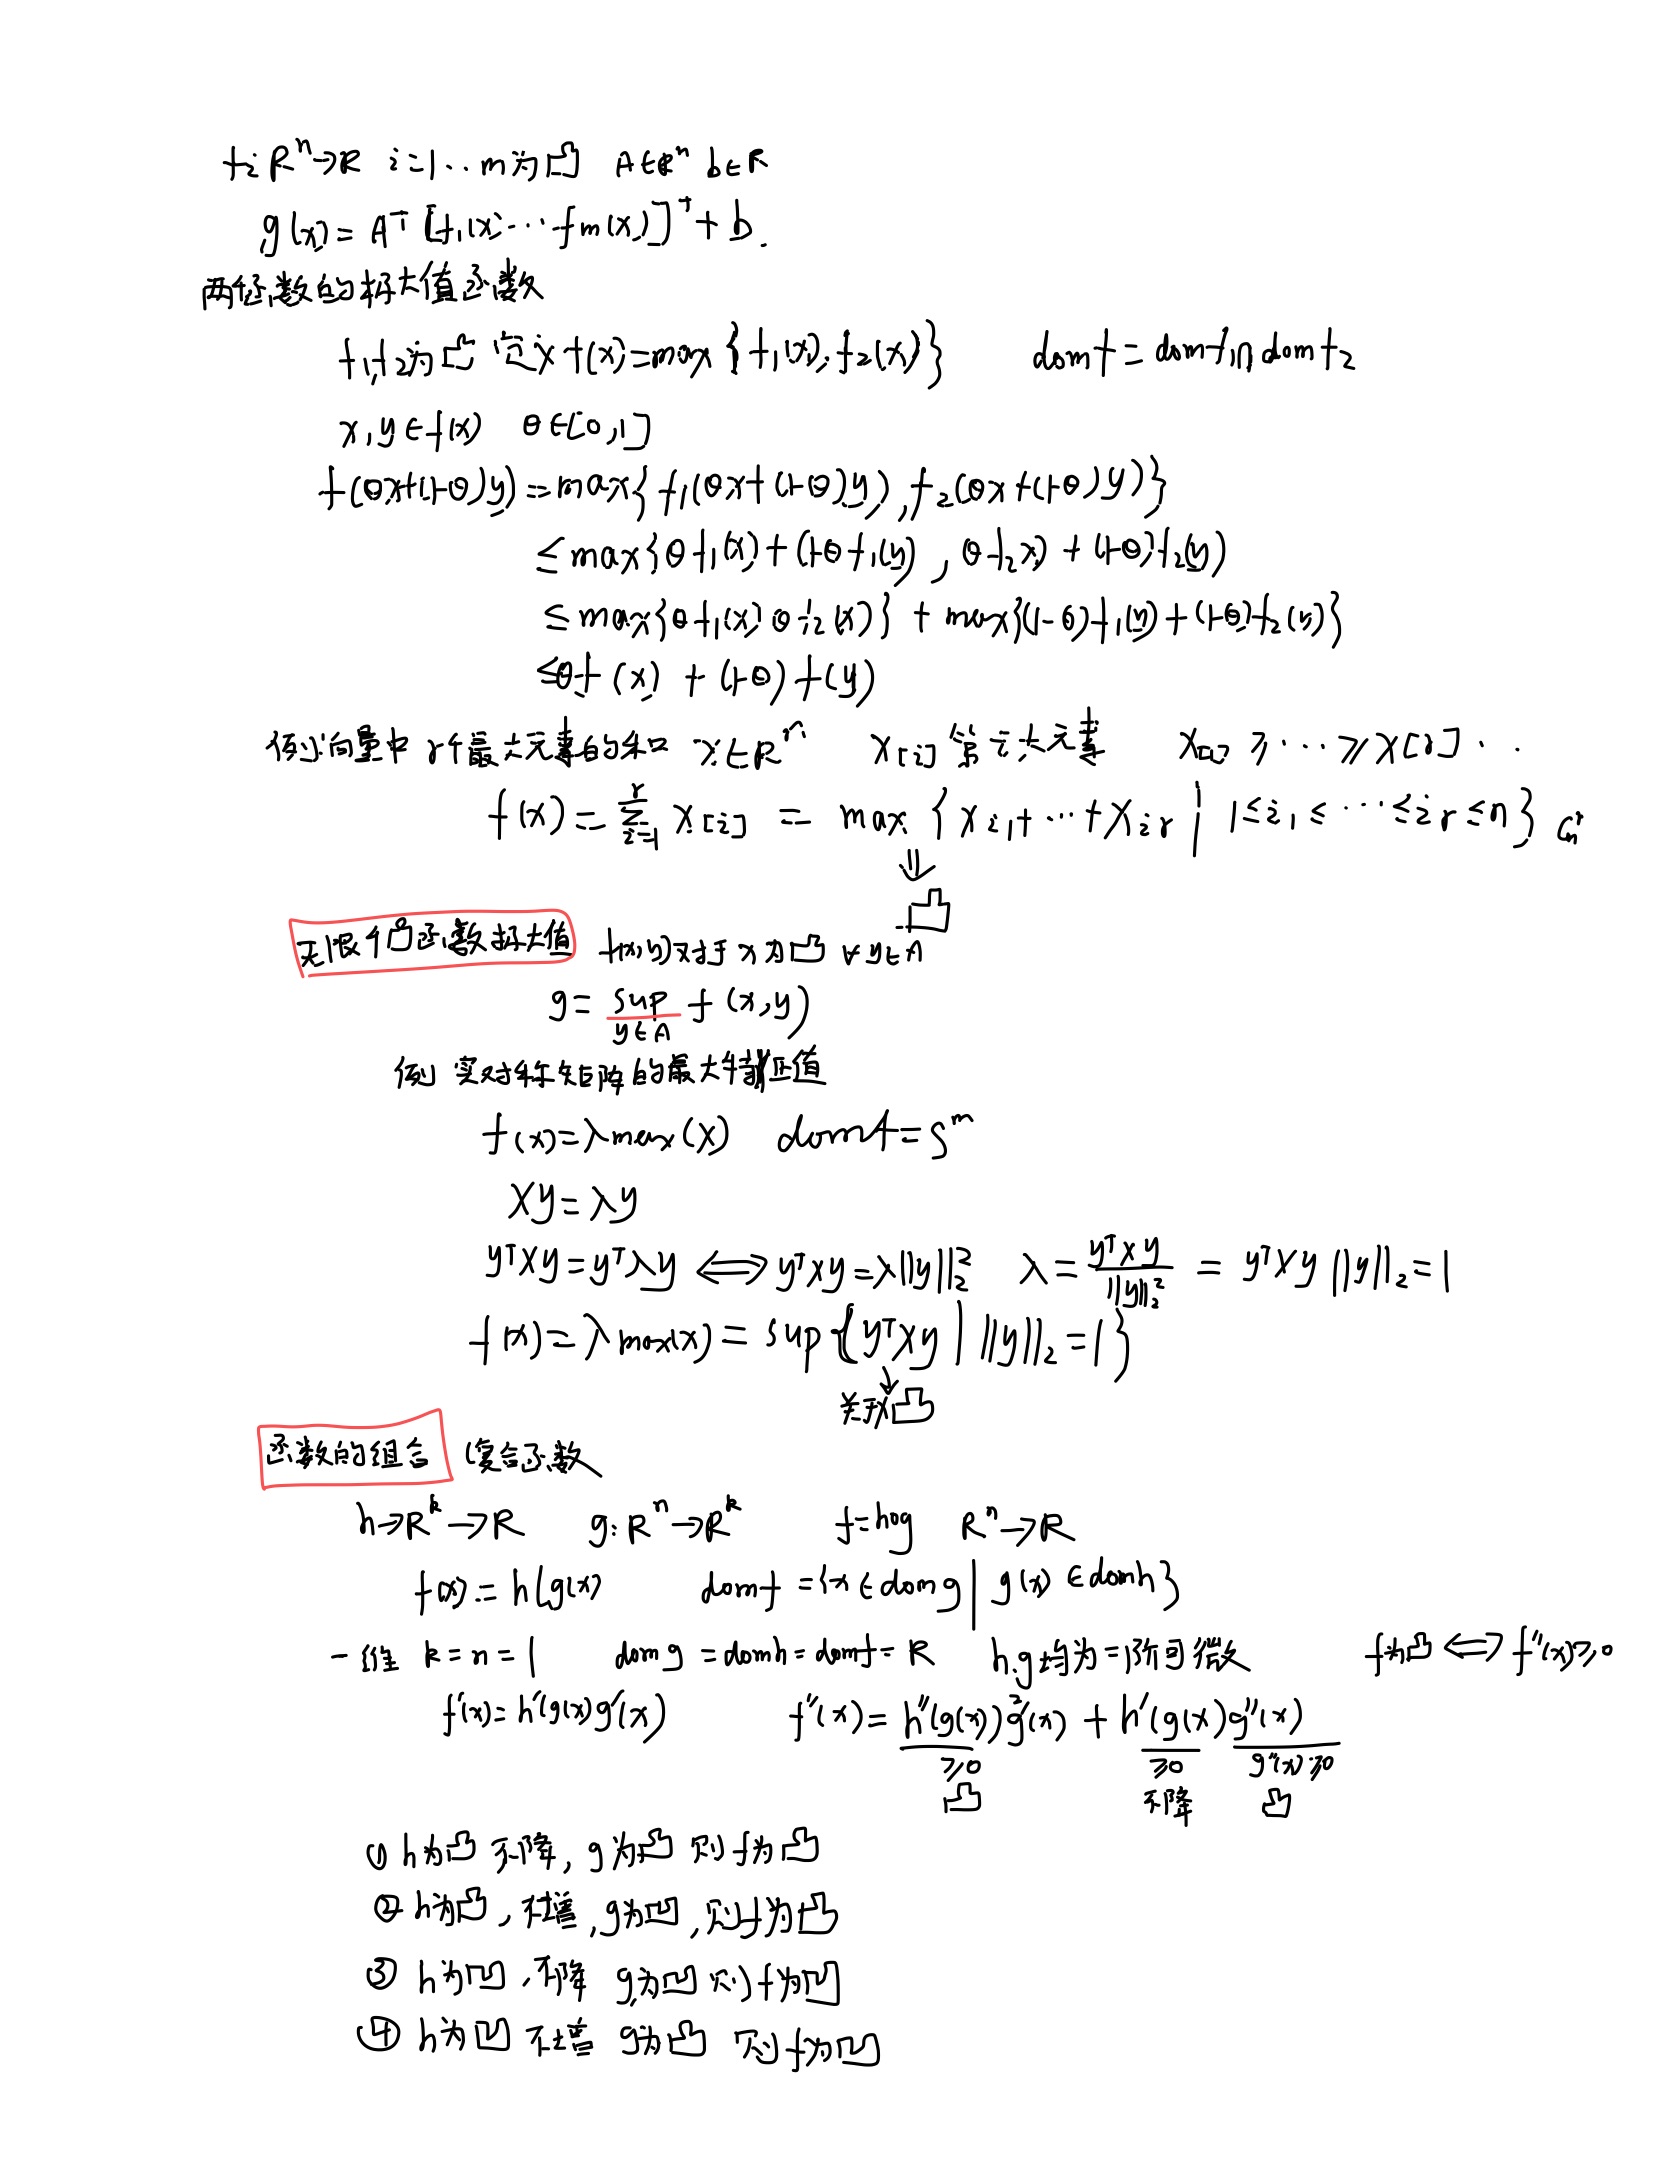 fi R^n→R i=1..m为凸 A∈R^n b∈R
g(x)=A^T[f_1(x)···f_m(x)]^T+b.
两个函数的极大值函数
f_1,f_2为凸 定义f(x)=max{f_1(x),f_2(x)} dom f=dom f_1∩dom f_2
x,y∈f(x) θ∈[0,1]
f(θx+(1-θ)y)=max{f_1(θx+(1-θ)y),f_2(θx+(1-θ)y)}
≤max{θf_1(x)+(1-θf_1(y),θf_2x)+(1-θ)f_2(y)
≤max{θf_1(x)θf_2(x)}+max{(1-θ)f_1(y)+(1-θ)f_2(y)}
≤θf(x)+(1-θ)f(y)
例:向量中r个最大元素的和 x∈R^n x_[i]第i大元素 x_[1]≥···≥x[r]··
f(x)=∑_{i=1}^{r} x_[i] = max{x_{i_1}+···+x_{i_r}|1≤i_1≤···≤i_r≤n} C_n^r
⇓
凸
无限个凸函数极大值 f(x,y)对于x为凸 ∀y∈A
g=sup_{y∈A} f(x,y)
例 实对称矩阵的最大特征值
f(x)=λmax(X) dom f=S^m
Xy=λy
y^TXy=y^Tλy⇔y^TXy=λ||y||_2^2 λ=y^TXy/||y||_2^2 = y^TXy ||y||_2=1
f(x)=λmax(x)=sup{y^TXy|||y||_2=1}
↓
关于X凸
函数的组合 (复合函数
h→R^k→R g:R^n→R^k f=h∘g R^n→R
f(x)=h(g(x) dom f={x∈dom g|g(x)∈dom h}
一维 k=n=1 dom g=dom h=dom f=R h.g均为二阶可微 f为凸⇔f''(x)≥0
f'(x)=h'(g(x)g'(x) f''(x)=h''(g(x))g'^2(x)+h'(g(x)g''(x)
≥0 ≥0 g''(x)≥0
凸 不降 凸
① h为凸 不降,g为凸 则f为凸
② h为凸,不增,g为凹,则f为凸
③ h为凹,不降 g为凹 则f为凹
④ h为凹 不增 g为凸 则f为凹